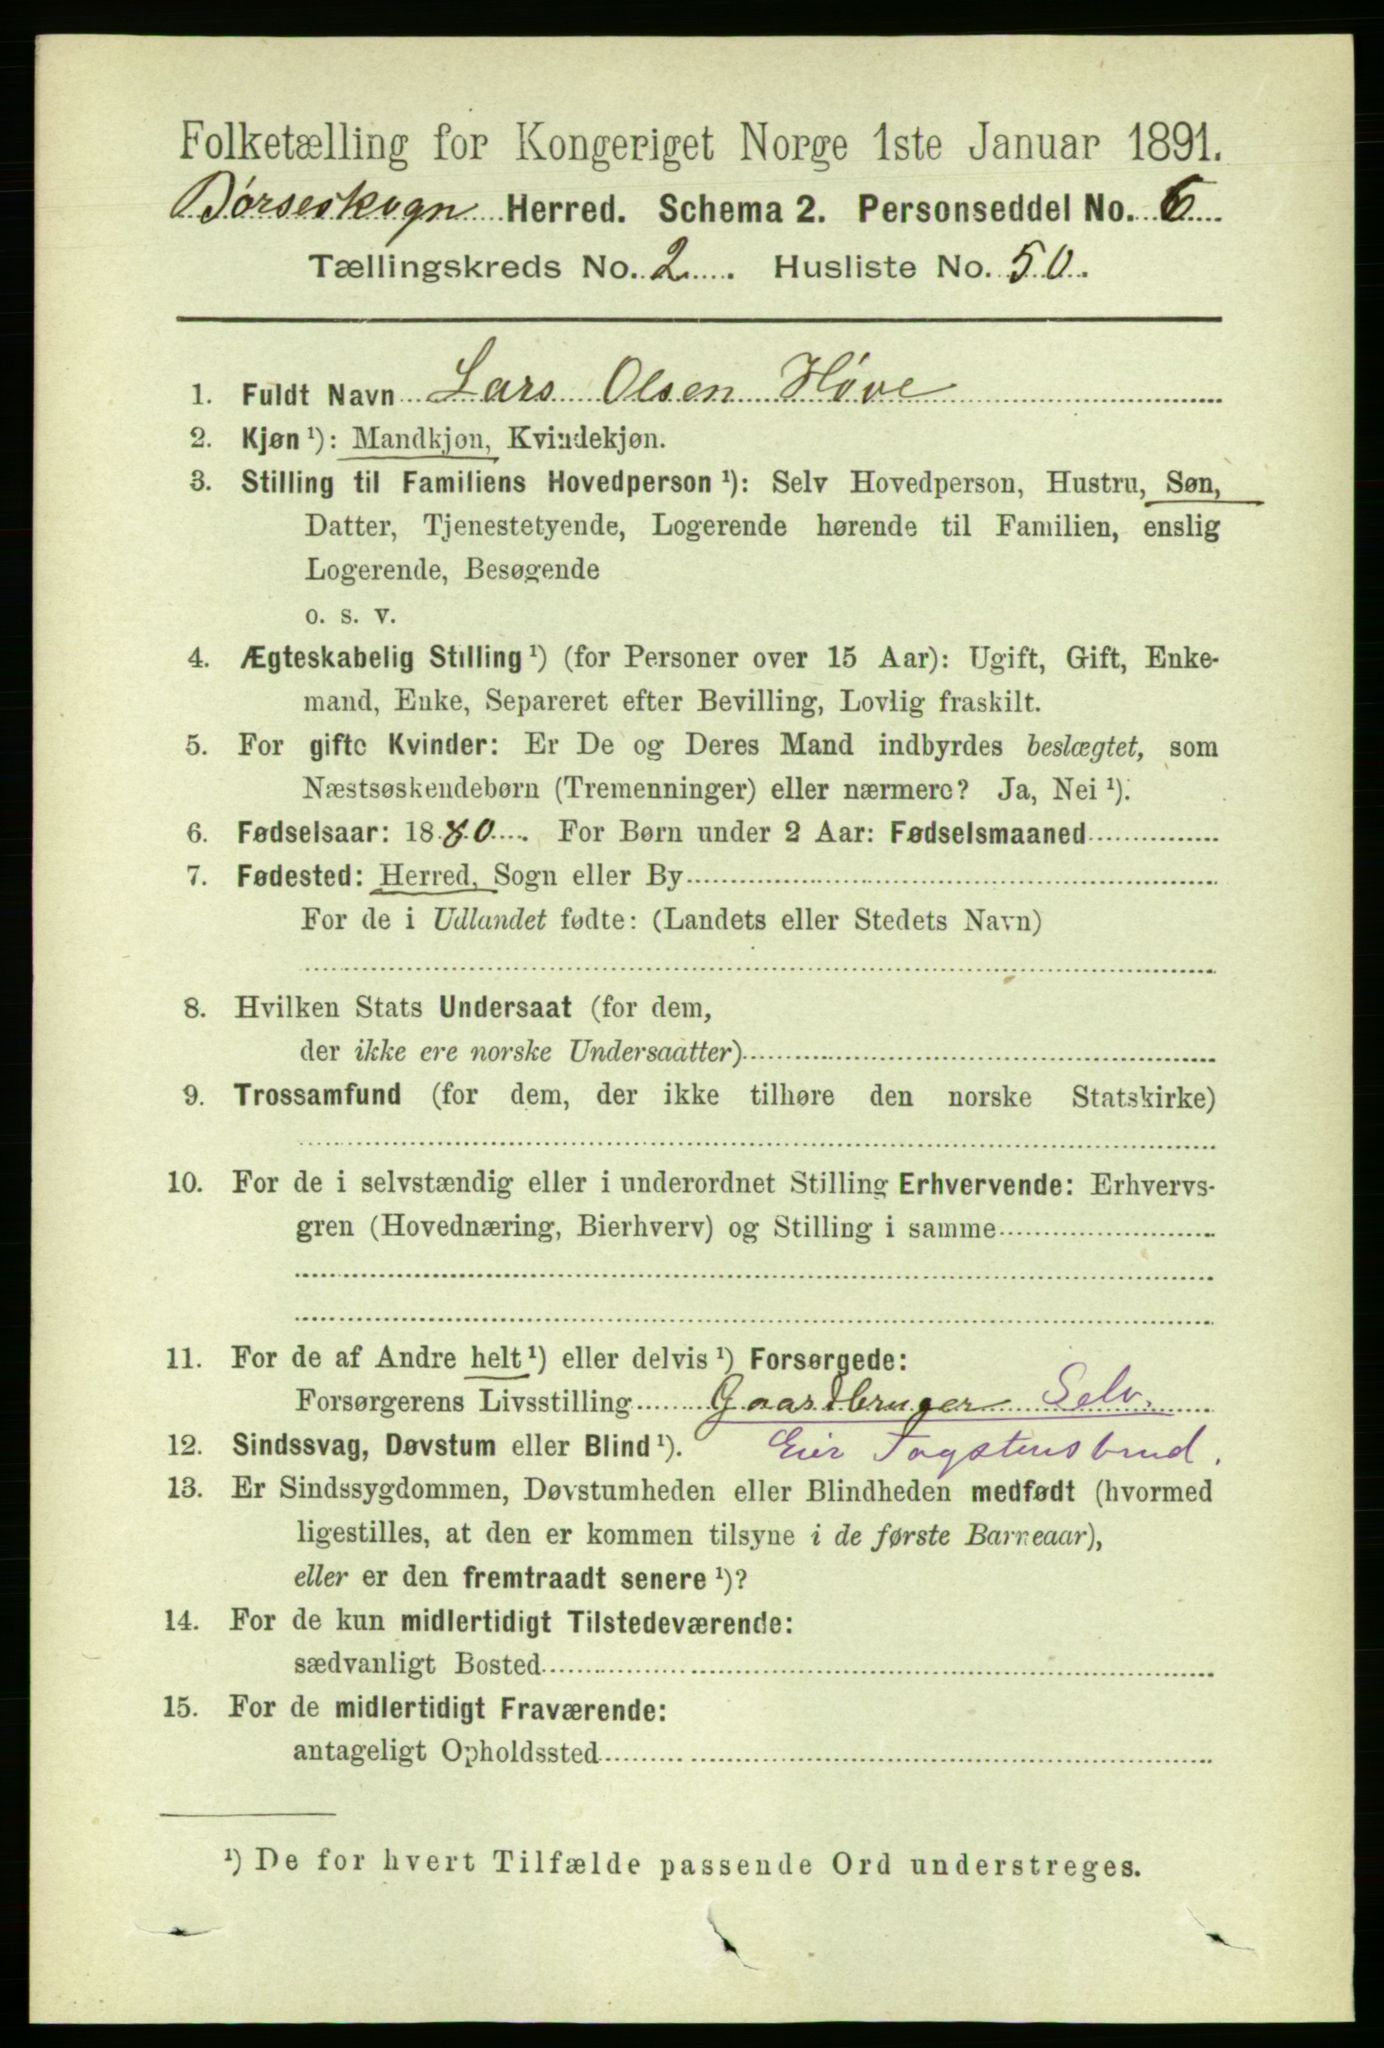 Folketælling for Kongeriget Norge 1ste Januar 1891.
Børseskogn Herred. Schema 2. Personseddel No. 6
Tællingskreds No. 2. Husliste No. 50.
1. Fuldt Navn Lars Olsen Høve
2. Kjøn ¹): Mandkjøn, Kvindekjøn.
3. Stilling til Familiens Hovedperson ¹): Selv Hovedperson, Hustru, Søn,
Datter, Tjenestetyende, Logerende hørende til Familien, enslig
Logerende, Besøgende
o. s. v.
4. Ægteskabelig Stilling ¹) (for Personer over 15 Aar): Ugift, Gift, Enke-
mand, Enke, Separeret efter Bevilling, Lovlig fraskilt.
5. For gifte Kvinder: Er De og Deres Mand indbyrdes beslægtet, som
Næstsøskendebørn (Tremenninger) eller nærmere? Ja, Nei ¹).
6. Fødselsaar: 1880. For Børn under 2 Aar: Fødselsmaaned
7. Fødested: Herred, Sogn eller By
For de i Udlandet fødte: (Landets eller Stedets Navn)
8. Hvilken Stats Undersaat (for dem,
der ikke ere norske Undersaatter)
9. Trossamfund (for dem, der ikke tilhøre den norske Statskirke)
10. For de i selvstændig eller i underordnet Stilling Erhvervende: Erhvervs-
gren (Hovednæring, Bierhverv) og Stilling i samme
11. For de af Andre helt ¹) eller delvis ¹) Forsørgede:
Forsørgerens Livsstilling Gaardbruger Selv.
12. Sindssvag, Døvstum eller Blind ¹). Eier
13. Er Sindssygdommen, Døvstumheden eller Blindheden medfødt (hvormed
ligestilles, at den er kommen tilsyne i de første Barneaar),
eller er den fremtraadt senere ¹)?
14. For de kun midlertidigt Tilstedeværende:
sædvanligt Bosted
15. For de midlertidigt Fraværende:
antageligt Opholdssted
¹) De for hvert Tilfælde passende Ord understreges.